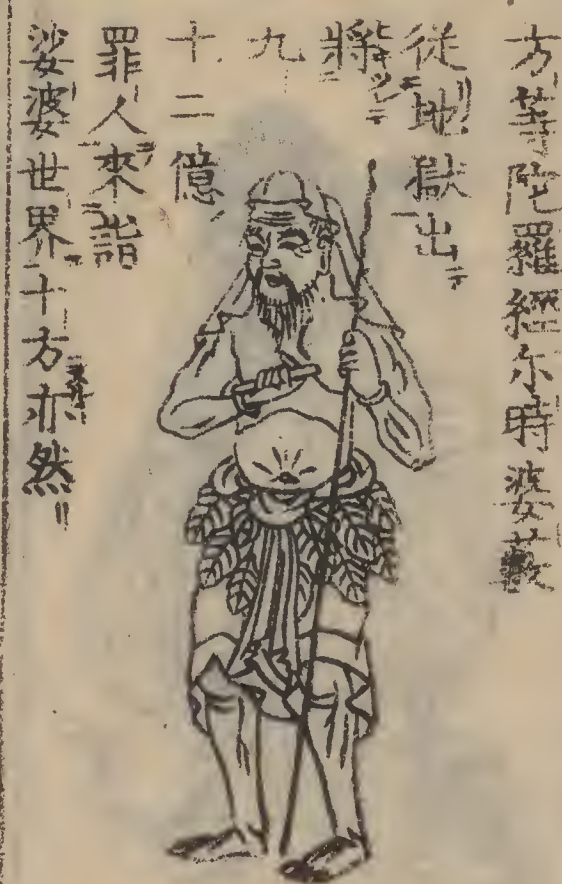 方等陀羅經尓時婆薮
從地獄出テ
將
九
十二億
罪人來詣
娑婆世界十方亦然